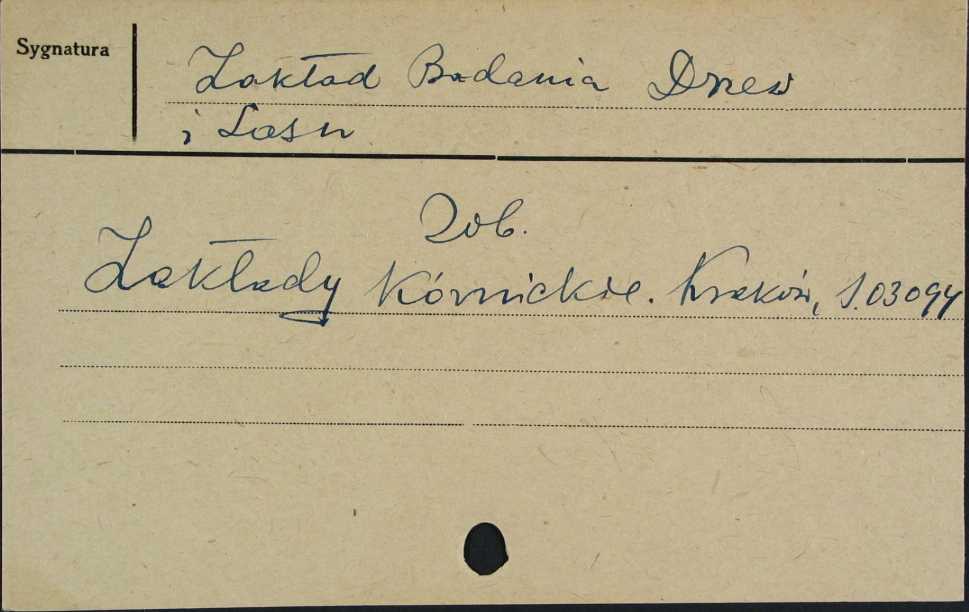 Sygnatura
Zakład Badania Drzew
i Lasu
Zob.
Zakłady Kórnickie. Kraków, S.03094